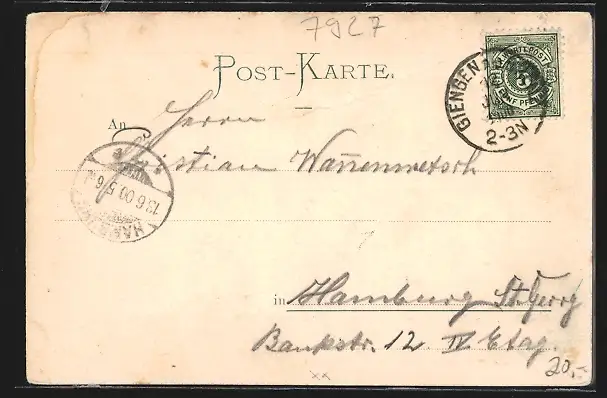 7927
POST-KARTE.
K. WÜRTT. POST
5
FÜNF PFENNIG
GIENGEN
JUN
2-3N
An Herrn
Christian Wannenwetsch
HAMBURG
13.6.00.5-6
in Hamburg St. Georg
Bankstr. 12 IV Etag.
20,-
xx